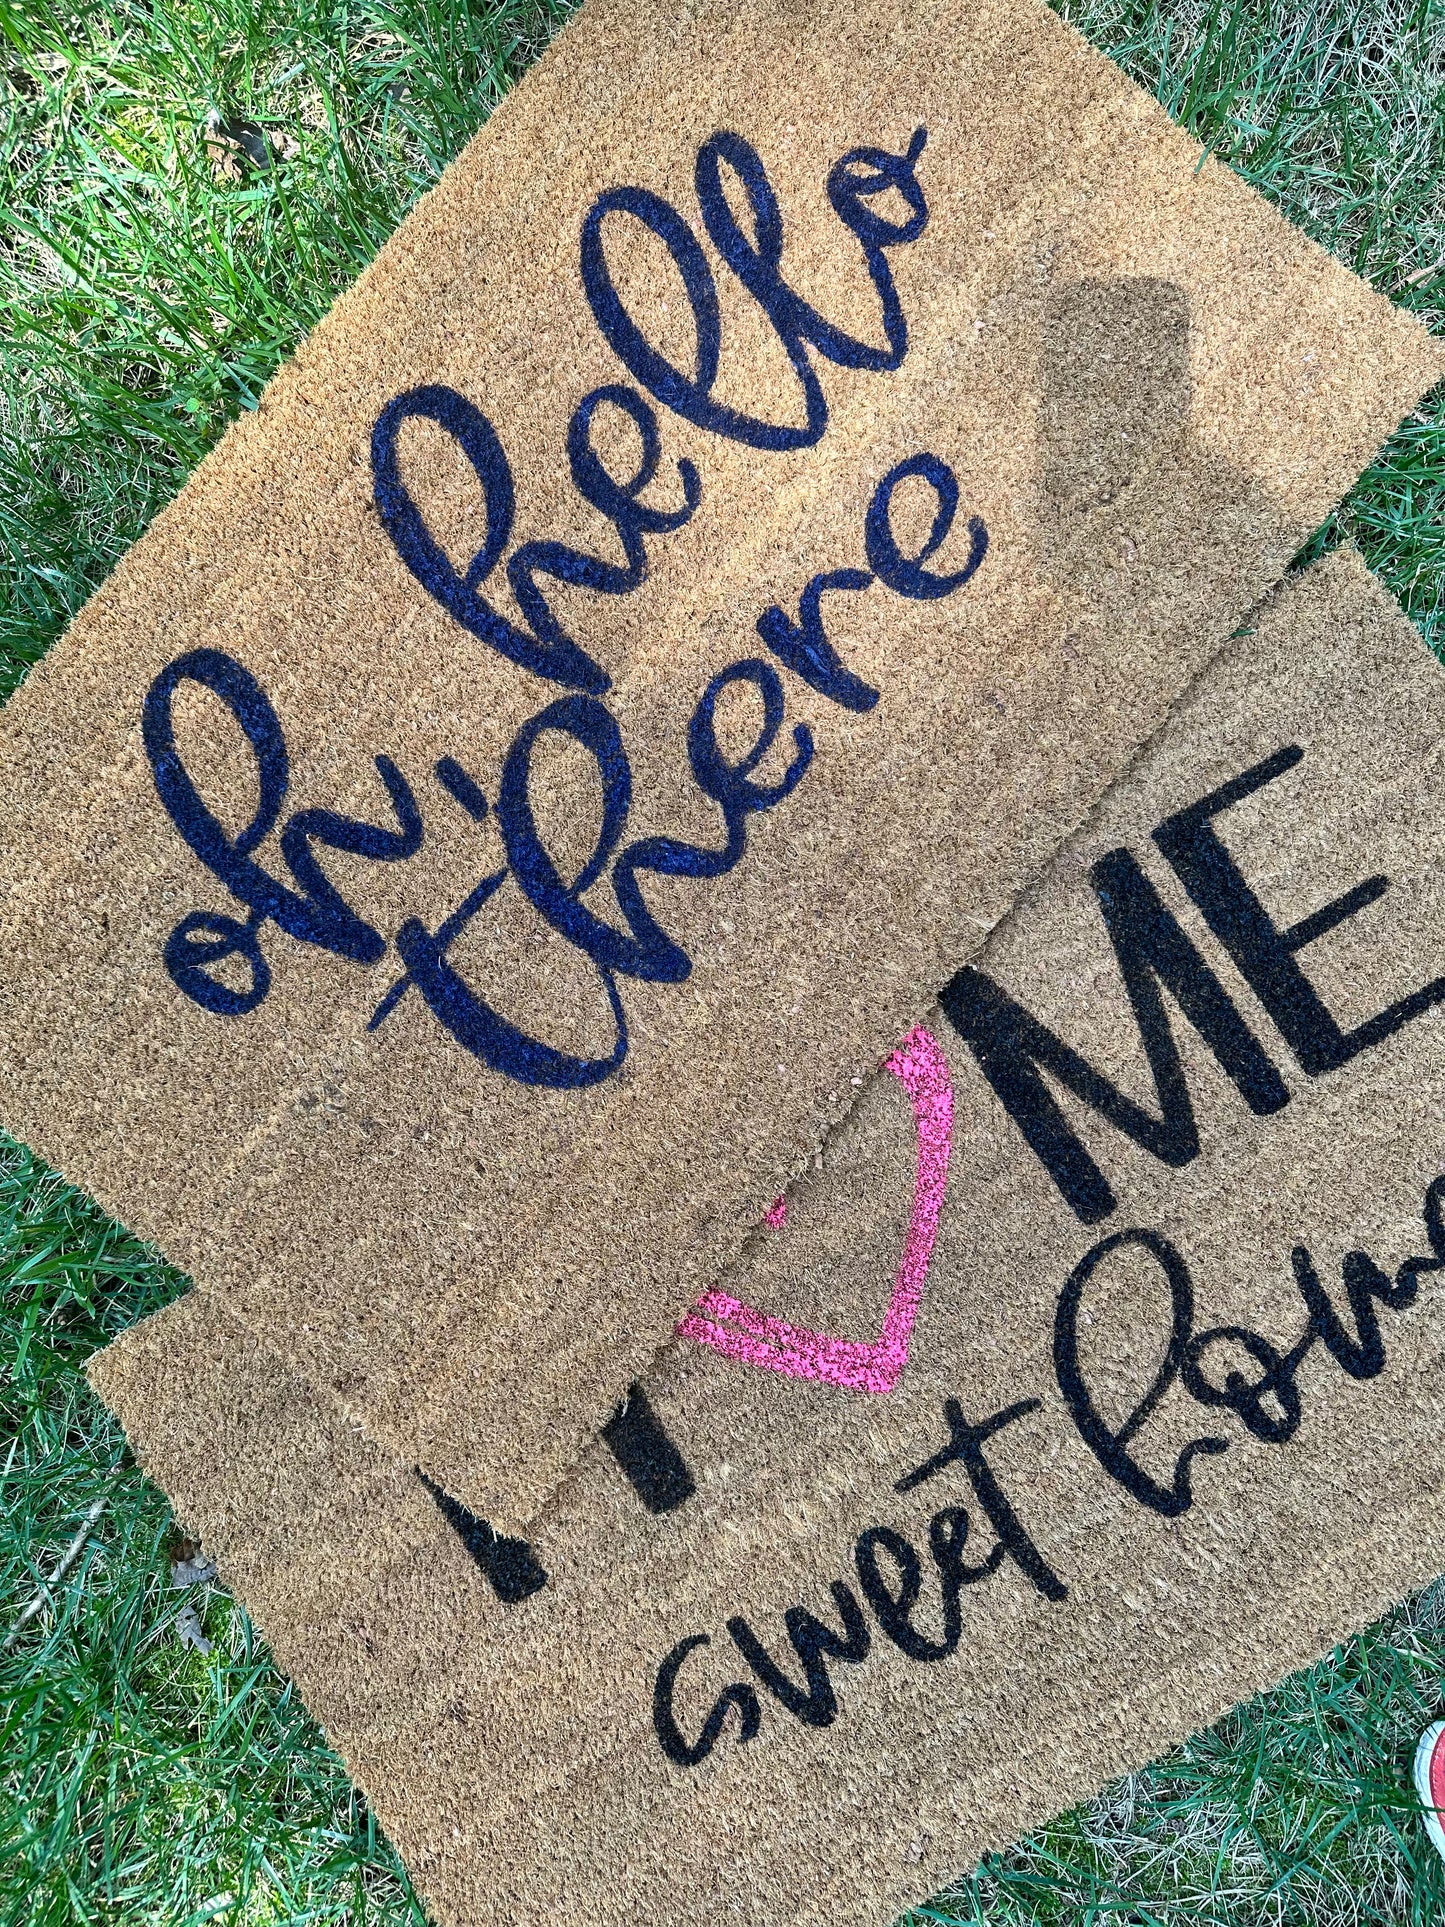 oh, hello
there
ME
sweet home